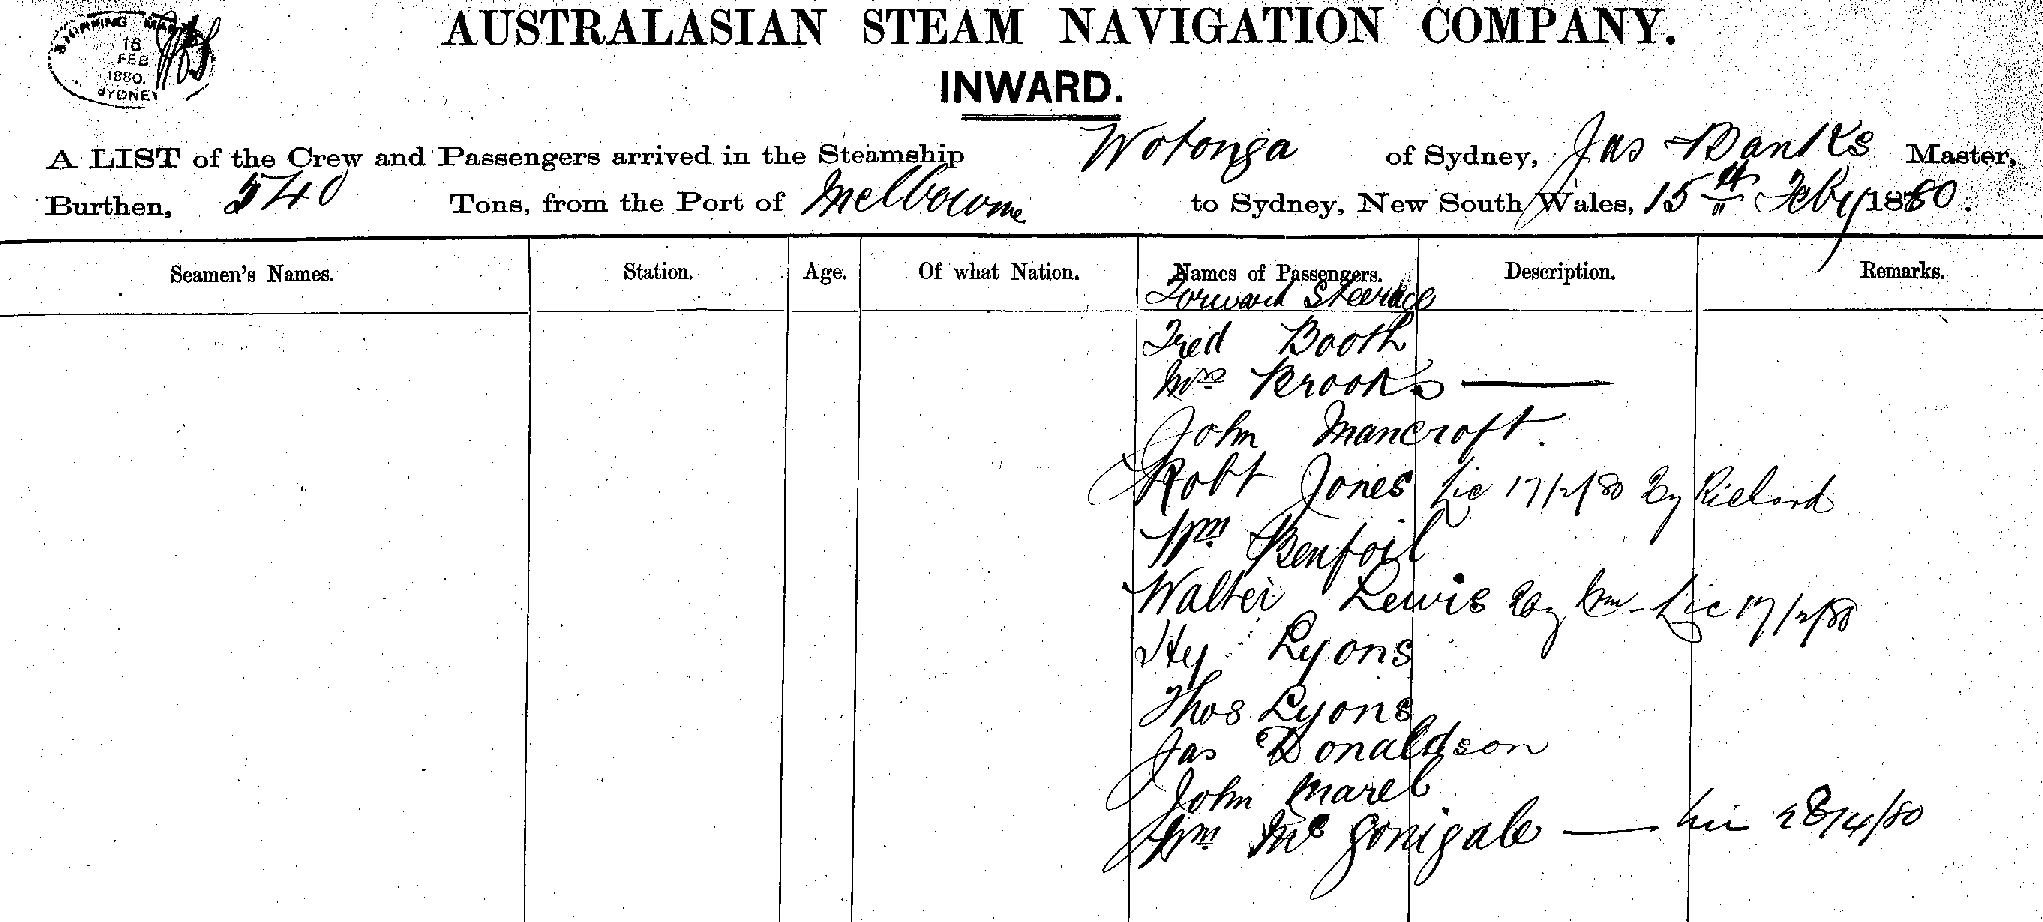 SHIPPING MA
16
FEB
1880.
SYDNEY
AUSTRALASIAN STEAM NAVIGATION COMPANY.
INWARD.
A LIST of the Crew and Passengers arrived in the Steamship Wotonga of Sydney, Jas Banks Master,
Burthen, 540 Tons, from the Port of Melbourne to Sydney, New South Wales, 15th Feby 1880.
Seamen's Names. Station. Age. Of what Nation. Names of Passengers. Description. Remarks.
Forward Steerage
Fred Booth
Mrs Brooks
John Mancroft.
Robt Jones Lic 17/2/80 By Richard
Wm Benfoil
Walter Lewis Lic 17/2/80
Hy Lyons
Thos Lyons
Jas Donaldson
John Marel
Wm McGonigale — 28/4/80